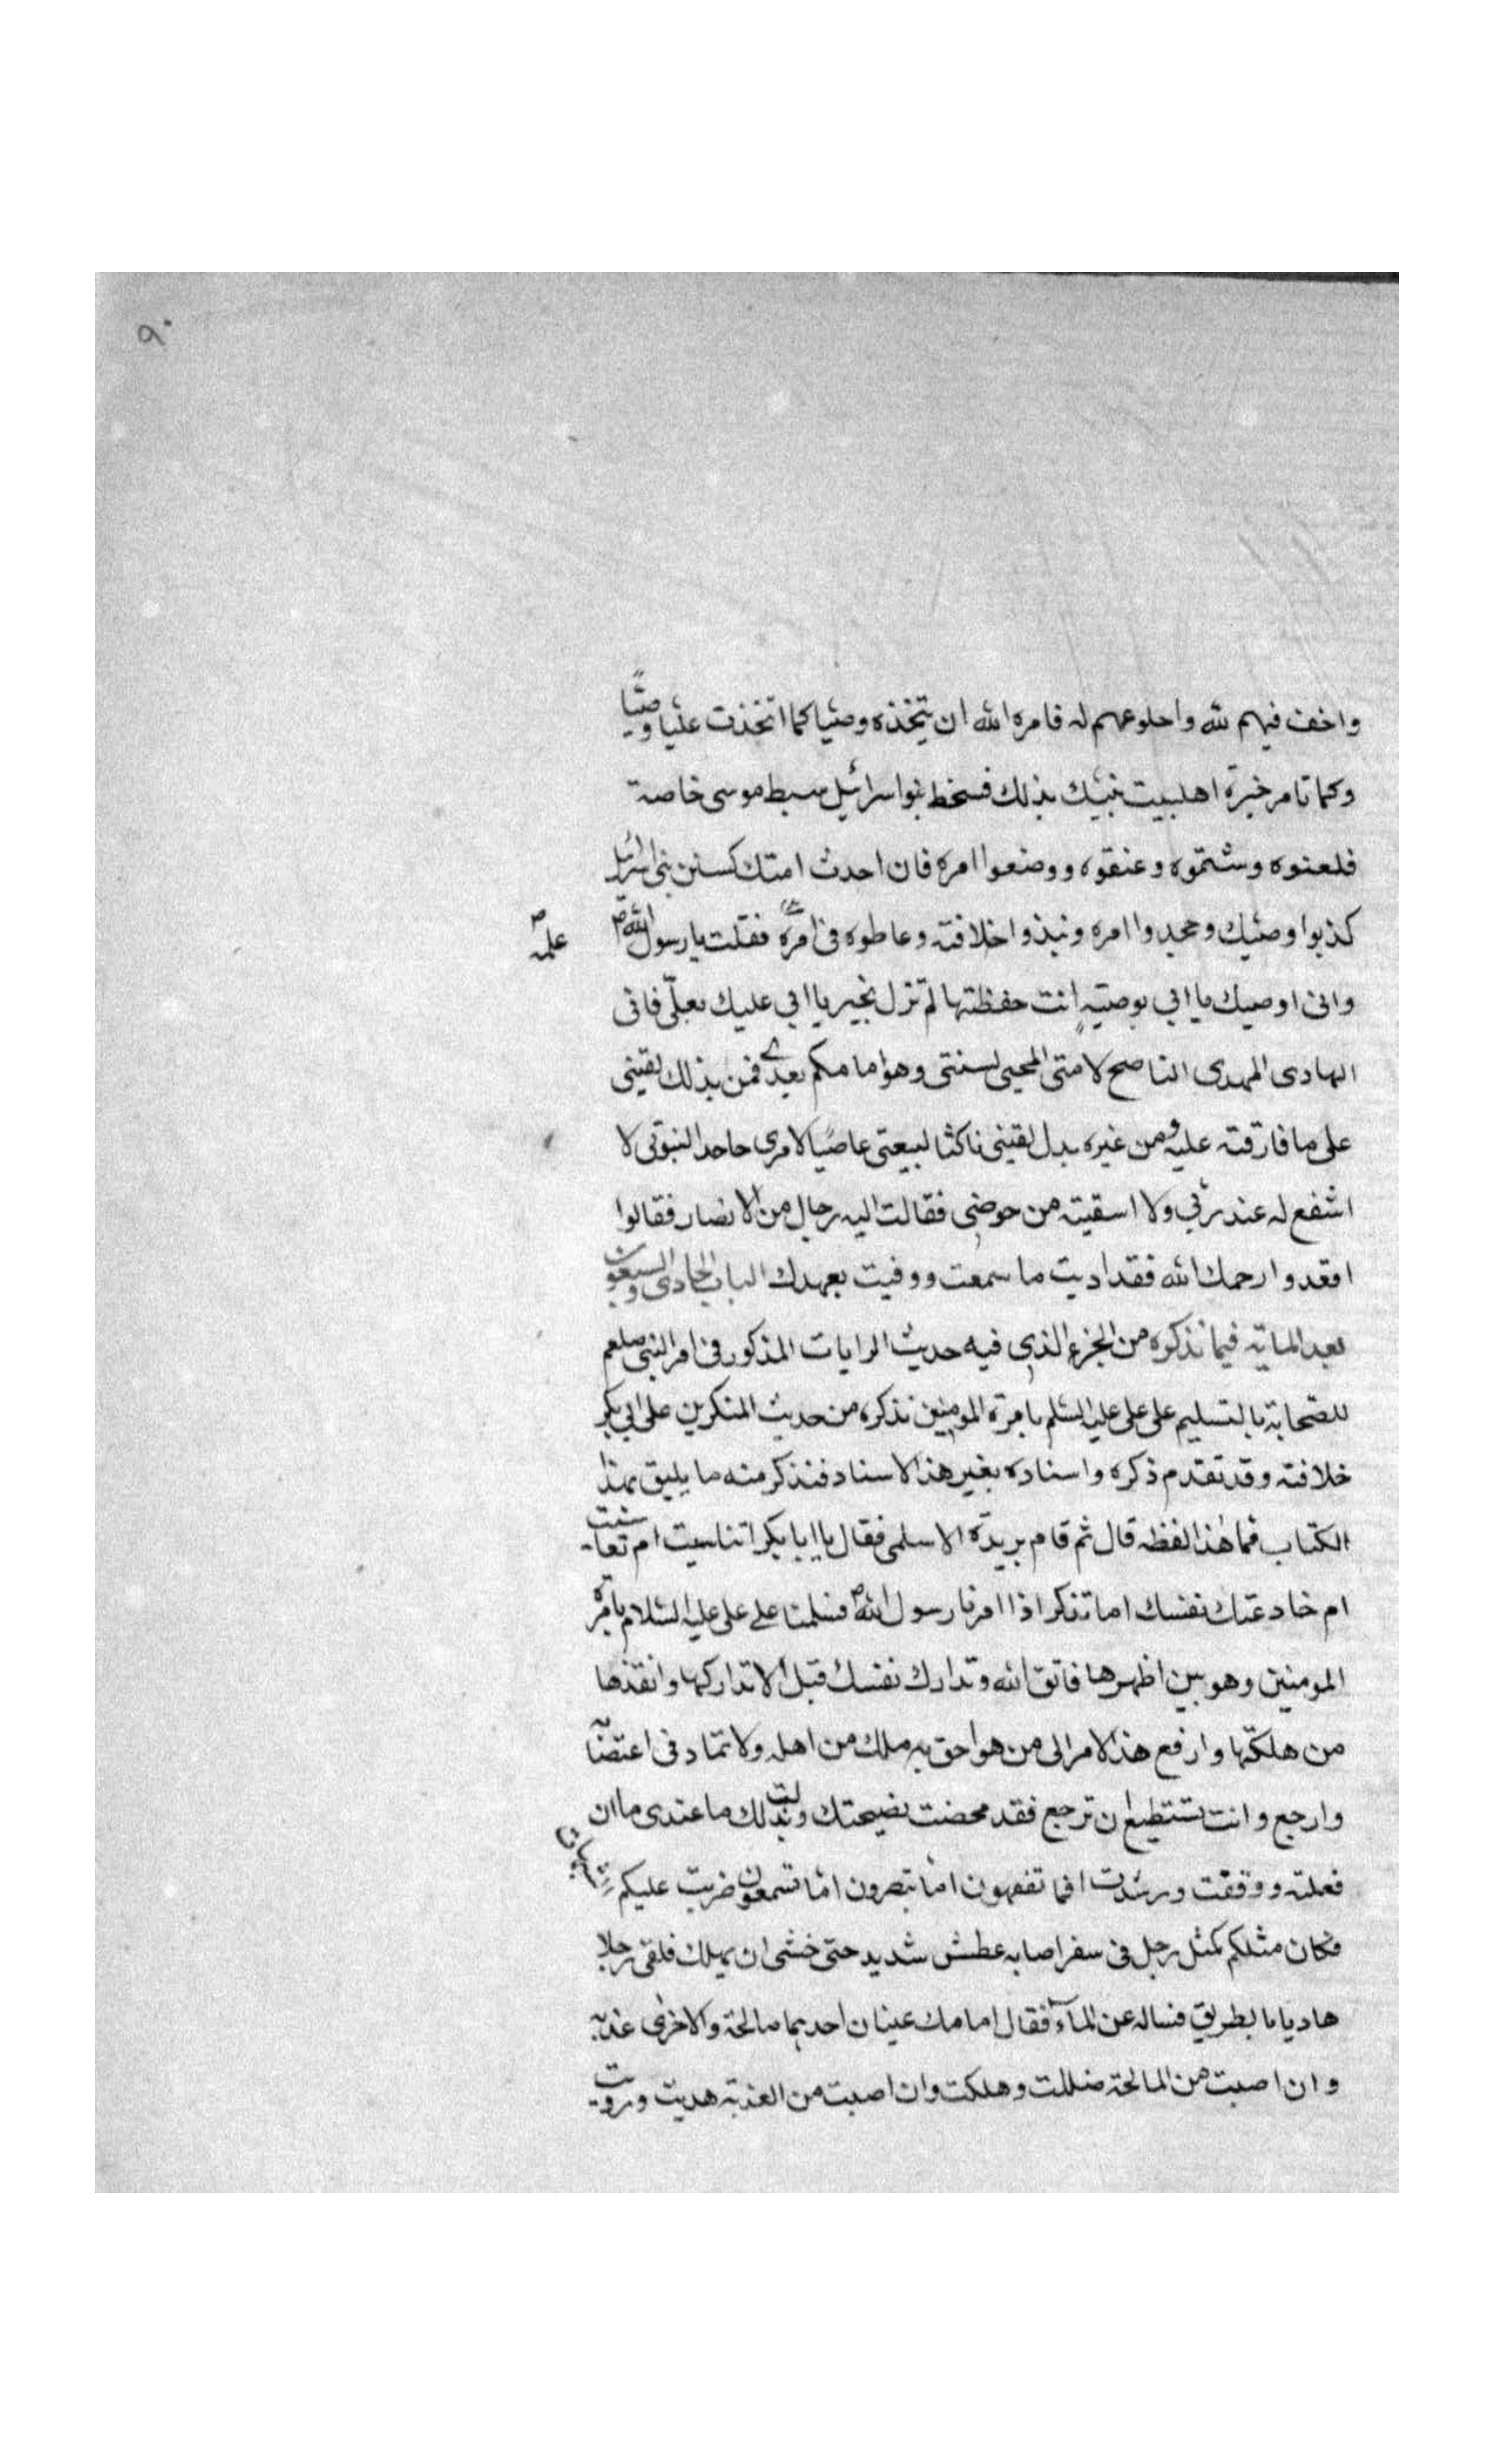 ٩٠
واخف فيهم لله واحلوعهم له فامره الله ان يتخذه وصيا كما اتخذت عليا وصيّاً
وكما تامر خيرة اهلبيت نبيك بذلك فسخط بنوا سرائيل سبط موسى خاصة
فلعنوه وشتموه وعنقوه ووضعوا امره فان احدث امتك كسنن بنى اسرائيل
كذبوا وصيك وجحدوا امره ونبذوا خلافته وغاطوه فى امره فقلت يا رسول الله ص
علمه
وانى اوصيك يا ابي بوصية انت حفظتها لم تزل بخير يا ابي عليك بعلّى فانى
الهادى المهدى الناصح لامتى المحيى لسنتى وهو امامكم بعدى فمن بذلك لقينى
على ما فارقته عليه ومن غيره بدل لقينى ناكثا لبيعتى عاصيًا لامرى جاحدا لنبوتى لا
اشفع له عند ربي ولا اسقيته من حوضى فقالت اليه رجال من الانصار فقالوا
اقعدوا رحمك الله فقد اديت ما سمعت ووفيت بعهدك الباب الحادى والسبعون
بعد الماية فيما نذكره من الجزء الذى فيه حديث الرايات المذكور فى امر النبى صلعم
للصحابة بالتسليم على على عليه السلم بامرة المومنين نذكره من حديث المنكرين على ابى بكر
خلافته وقد تقدم ذكره واسناده بغير هذا الاسناد فنذكر منه ما يليق بهذا
الكتاب فما هذا لفظه قال ثم قام بريدة الاسلمى فقال يا ابا بكر اتناسيت ام تعاشيت
ام خادعتك نفسك اما تذكر اذا امرنا رسول الله ص فسلمنا على على عليه السلام بامرة
المومنين وهو بين اظهرها فاتق الله وتدارك نفسك قبل الا تداركها وانقذها
من هلكتها وارفع هذا الامر الى من هو احق به ملك من اهله ولا تماد فى اعتصابه
وارجع وانت تستطيع ان ترجع فقد محضت نصيحتك وبذلت لك ما عندى ما ان
فعلته ووفقت ورشدت افما تفقهون اما تبصرون اما تسمعون ضربت عليكم
فكان مثلكم كمثل رجل فى سفر اصابه عطش شديد حتى خشى ان يهلك فلقى رجلا
هاديا بالطريق فساله عن المآء فقال امامك عينان احديهما مالحة والاخرى عذبة
وان اصبت من المالحة ضللت وهلكت وان اصبت من العذبة هديت ورويت